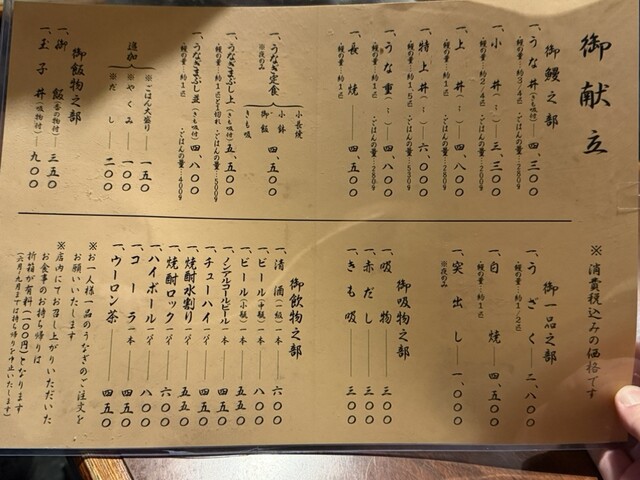 御献立
御鰻之部
一、うな丼(きも吸付)――四、三〇〇
・鰻の量・約3/4匹 ・ごはんの量・250g
一、小丼(〃)――三、三〇〇
・鰻の量・約2/4匹 ・ごはんの量・200g
一、上丼(〃)――四、八〇〇
・鰻の量・約1匹 ・ごはんの量・250g
一、特上丼(〃)――六、〇〇〇
・鰻の量・約1.5匹 ・ごはんの量・250g
一、うな重(〃)――四、八〇〇
・鰻の量・約1匹 ・ごはんの量・250g
一、長焼――四、五〇〇
・鰻の量・約1匹
一、うなぎ定食――五、四〇〇
※夜のみ
小長鰻
小鉢
御飯
きも吸
一、うなぎまぶし上(きも吸付)五、五〇〇
・鰻の量・約1匹と1切れ ・ごはんの量・500g
一、うなぎまぶし並(きも吸付)四、八〇〇
・鰻の量・約1匹 ・ごはんの量・400g
追加
※ごはん大盛り――一五〇
※やくみ――一〇〇
※だし――二〇〇
御飯物之部
一、御飯(香の物付)――三五〇
一、玉子丼(吸物付)――九〇〇
※消費税込みの価格です
御一品之部
一、うざく――二、八〇〇
・鰻の量・約1/2匹
一、白焼――四、五〇〇
・鰻の量・約1匹
一、突出し――一、〇〇〇
※夜のみ
御吸物之部
一、吸物――三〇〇
一、赤だし――三〇〇
一、きも吸――三〇〇
御飲物之部
一、清酒(一級)一本――六〇〇
一、ビール(中瓶)一本――八〇〇
一、ビール(小瓶)一本――五五〇
一、ノンアルコールビール一本――五五〇
一、チューハイ一パイ――四五〇
一、焼酎水割り一パイ――五五〇
一、焼酎ロック一パイ――六〇〇
一、ハイボール一パイ――八〇〇
一、コーラ一本――四五〇
一、ウーロン茶――四五〇
※お一人様一品のうなぎのご注文を
お願いいたします
※店内にてお召し上がりいただいた
お食事のお持ち帰りは
折箱が有料(一〇〇円)となります
(六月九月までは持ち帰りを中止いたします)